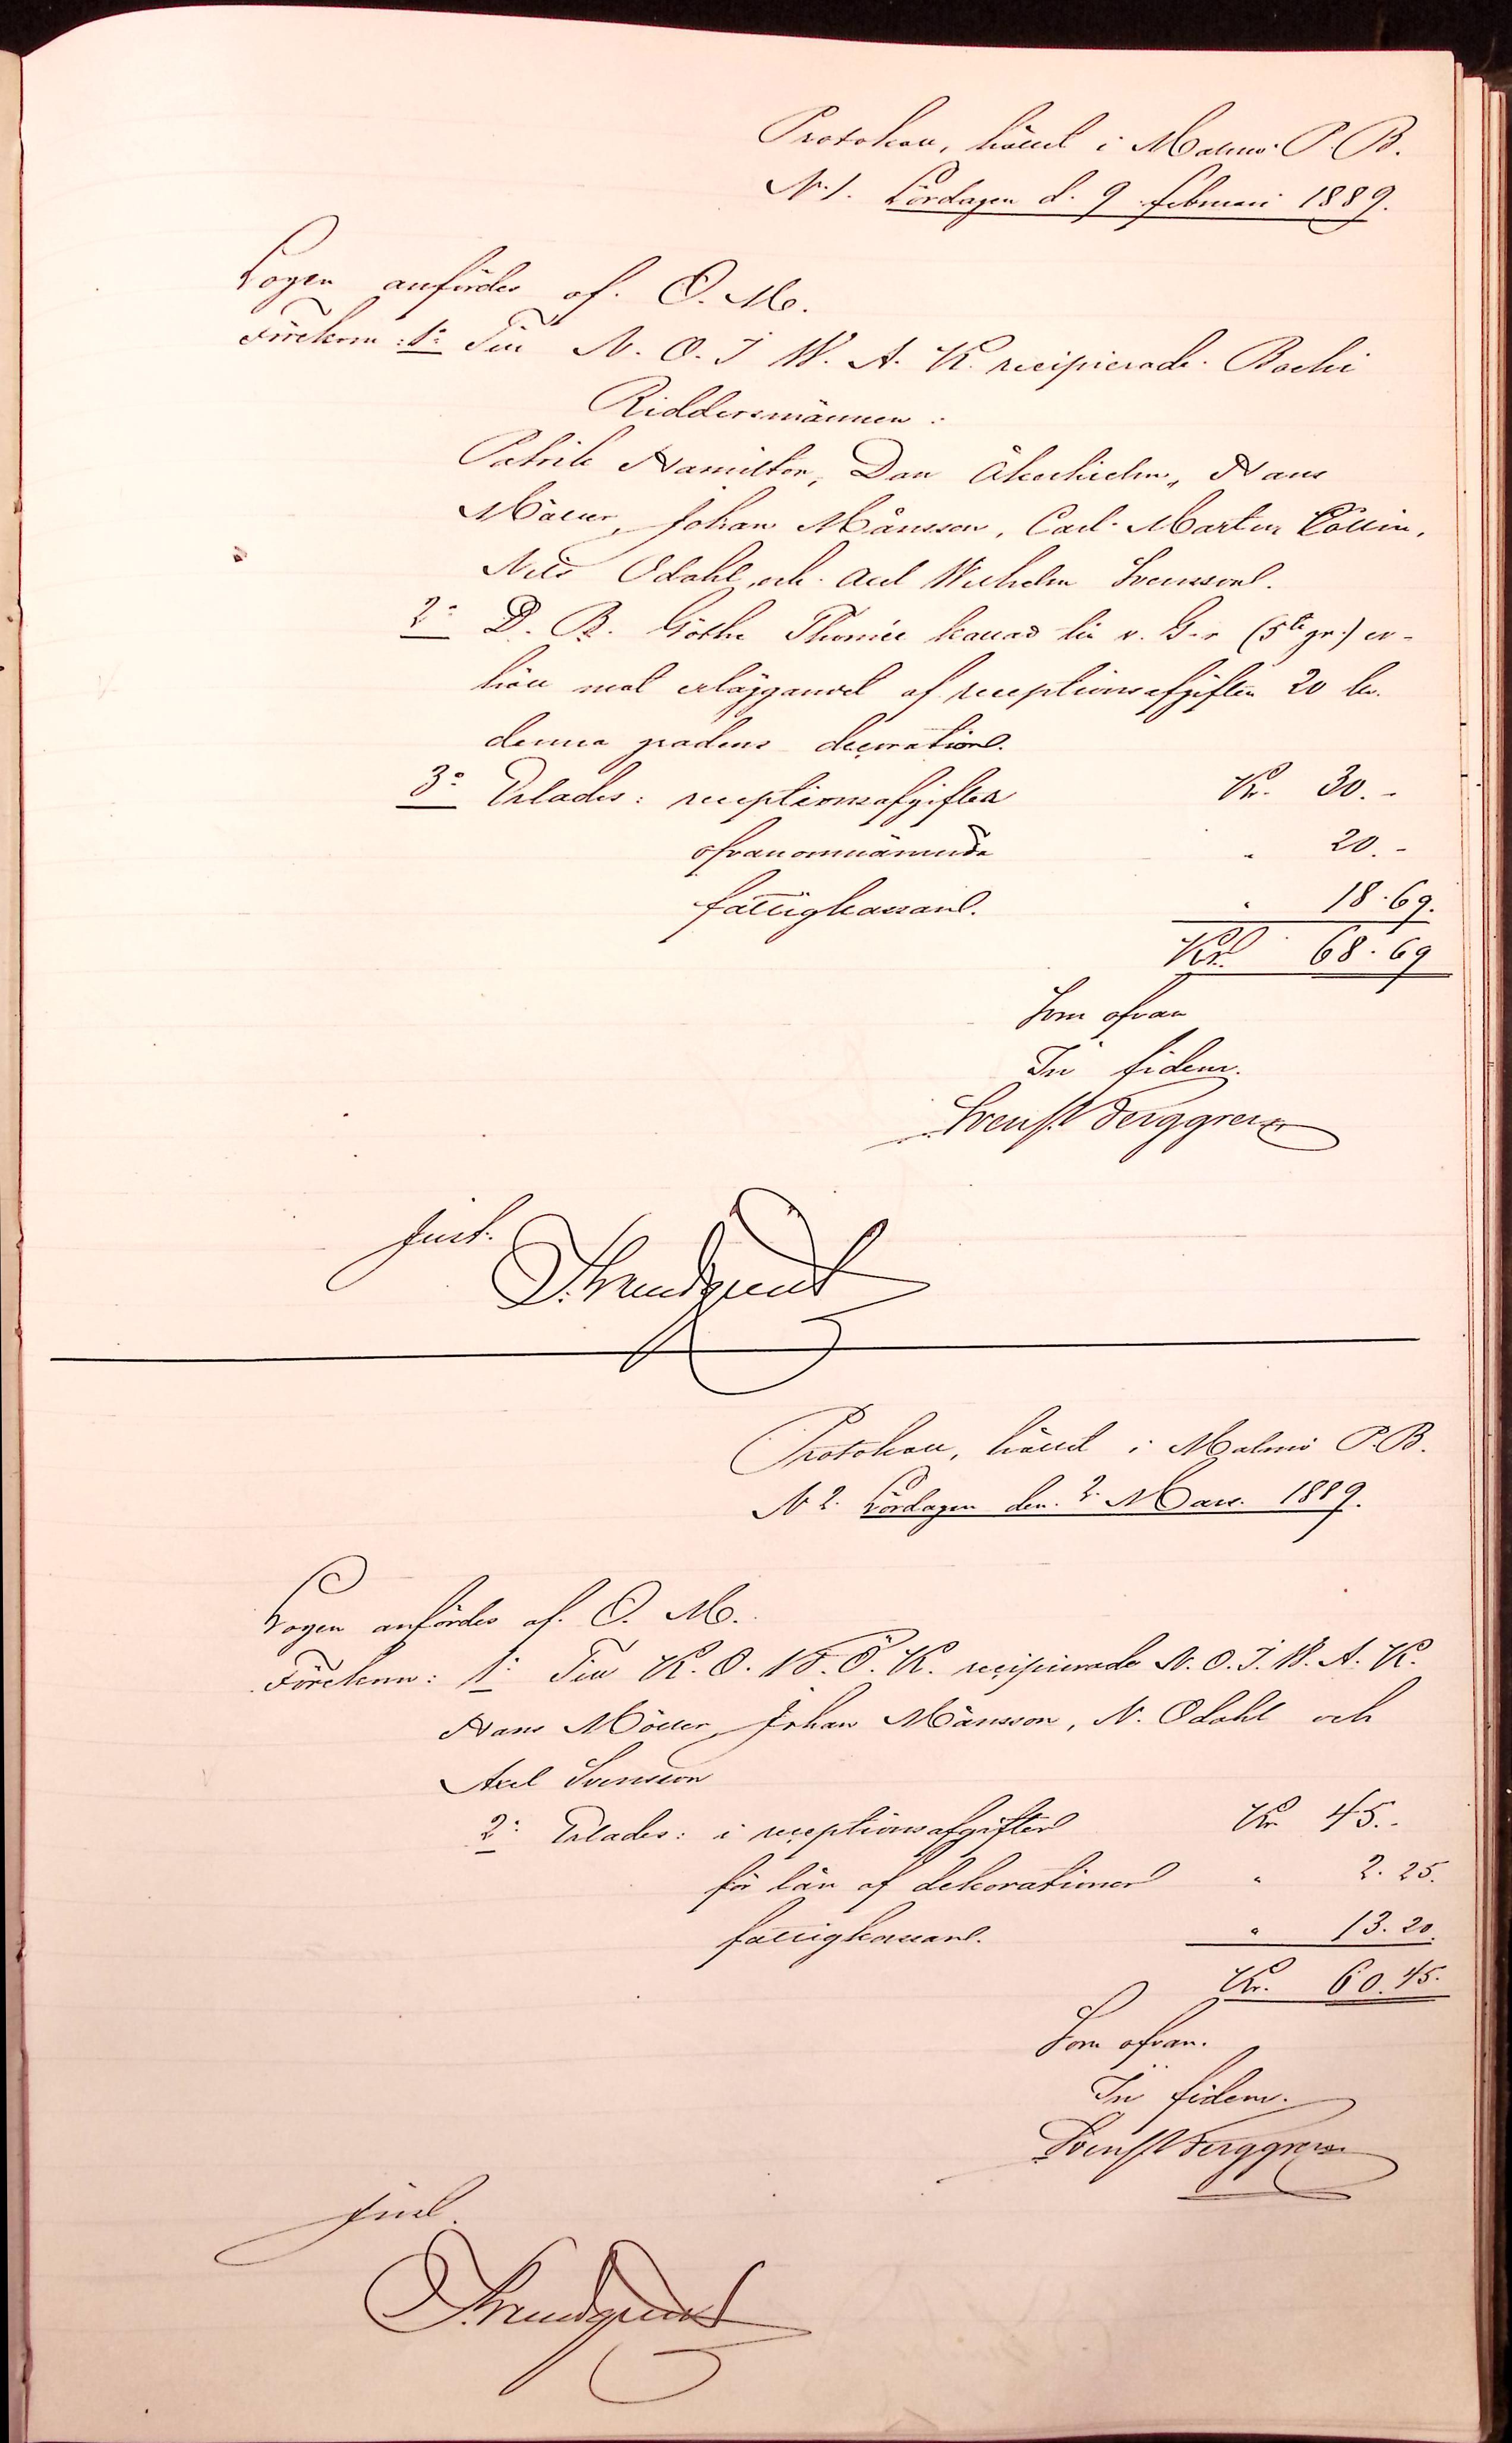 Protokoll, hållet i Malmö P. B.
N. 1. Lördagen d. 9 februari 1889.
Logen anfördes af. O. M.
Förekom: 1º Till N. O. I W. A. K. recipierade Bachi
Riddersmännen:
Patrik Hamilton, Dan Åkerhielm, Hans
Möller, Johan Månsson, Carl Martin Collin,
Nils Odahl och Axel Wilhelm Svensson.
2º D. B. Göthe Thomée kallad till v. G-r (5te gr.) er-
höll mot erläggande af receptionsafgiften 20 kr.
denna gradens decoration.
3º Erlades: receptionsafgifter Kr. 30.-
ofvanomnämnda " 20.-
fattigkassan. " 18.69.
Kr. 68.69
Som ofvan
In fidem.
Sven Berggren
Just.
Protokoll, hållet i Malmö P. B.
N 2. Lördagen den 2 Mars 1889.
Logen anfördes af. O. M.
Förekom: 1º Till K. O. W. Ö. K. recipierade N. O. I. W. A. K.
Hans Möller, Johan Månsson, N. Odahl och
Axel Svensson
2º Erlades: i receptionsafgifter Kr 45.-
för lån af dekorationer " 2.25.
fattigkassan. " 13.20.
Kr. 60.45.
Som ofvan.
In fidem.
Sven Berggren
Just.